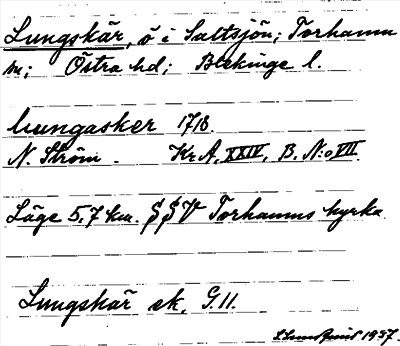 Lungskär, ö i Saltsjön; Torhamn
sn; Östra hd; Blekinge l.
Lungasker 1718.
N. Ström. Kr.A. XXIV, B. N:o VII
Läge 5.7 km. SSV Torhamns kyrka
Lungskär ek. G 11.
1937.